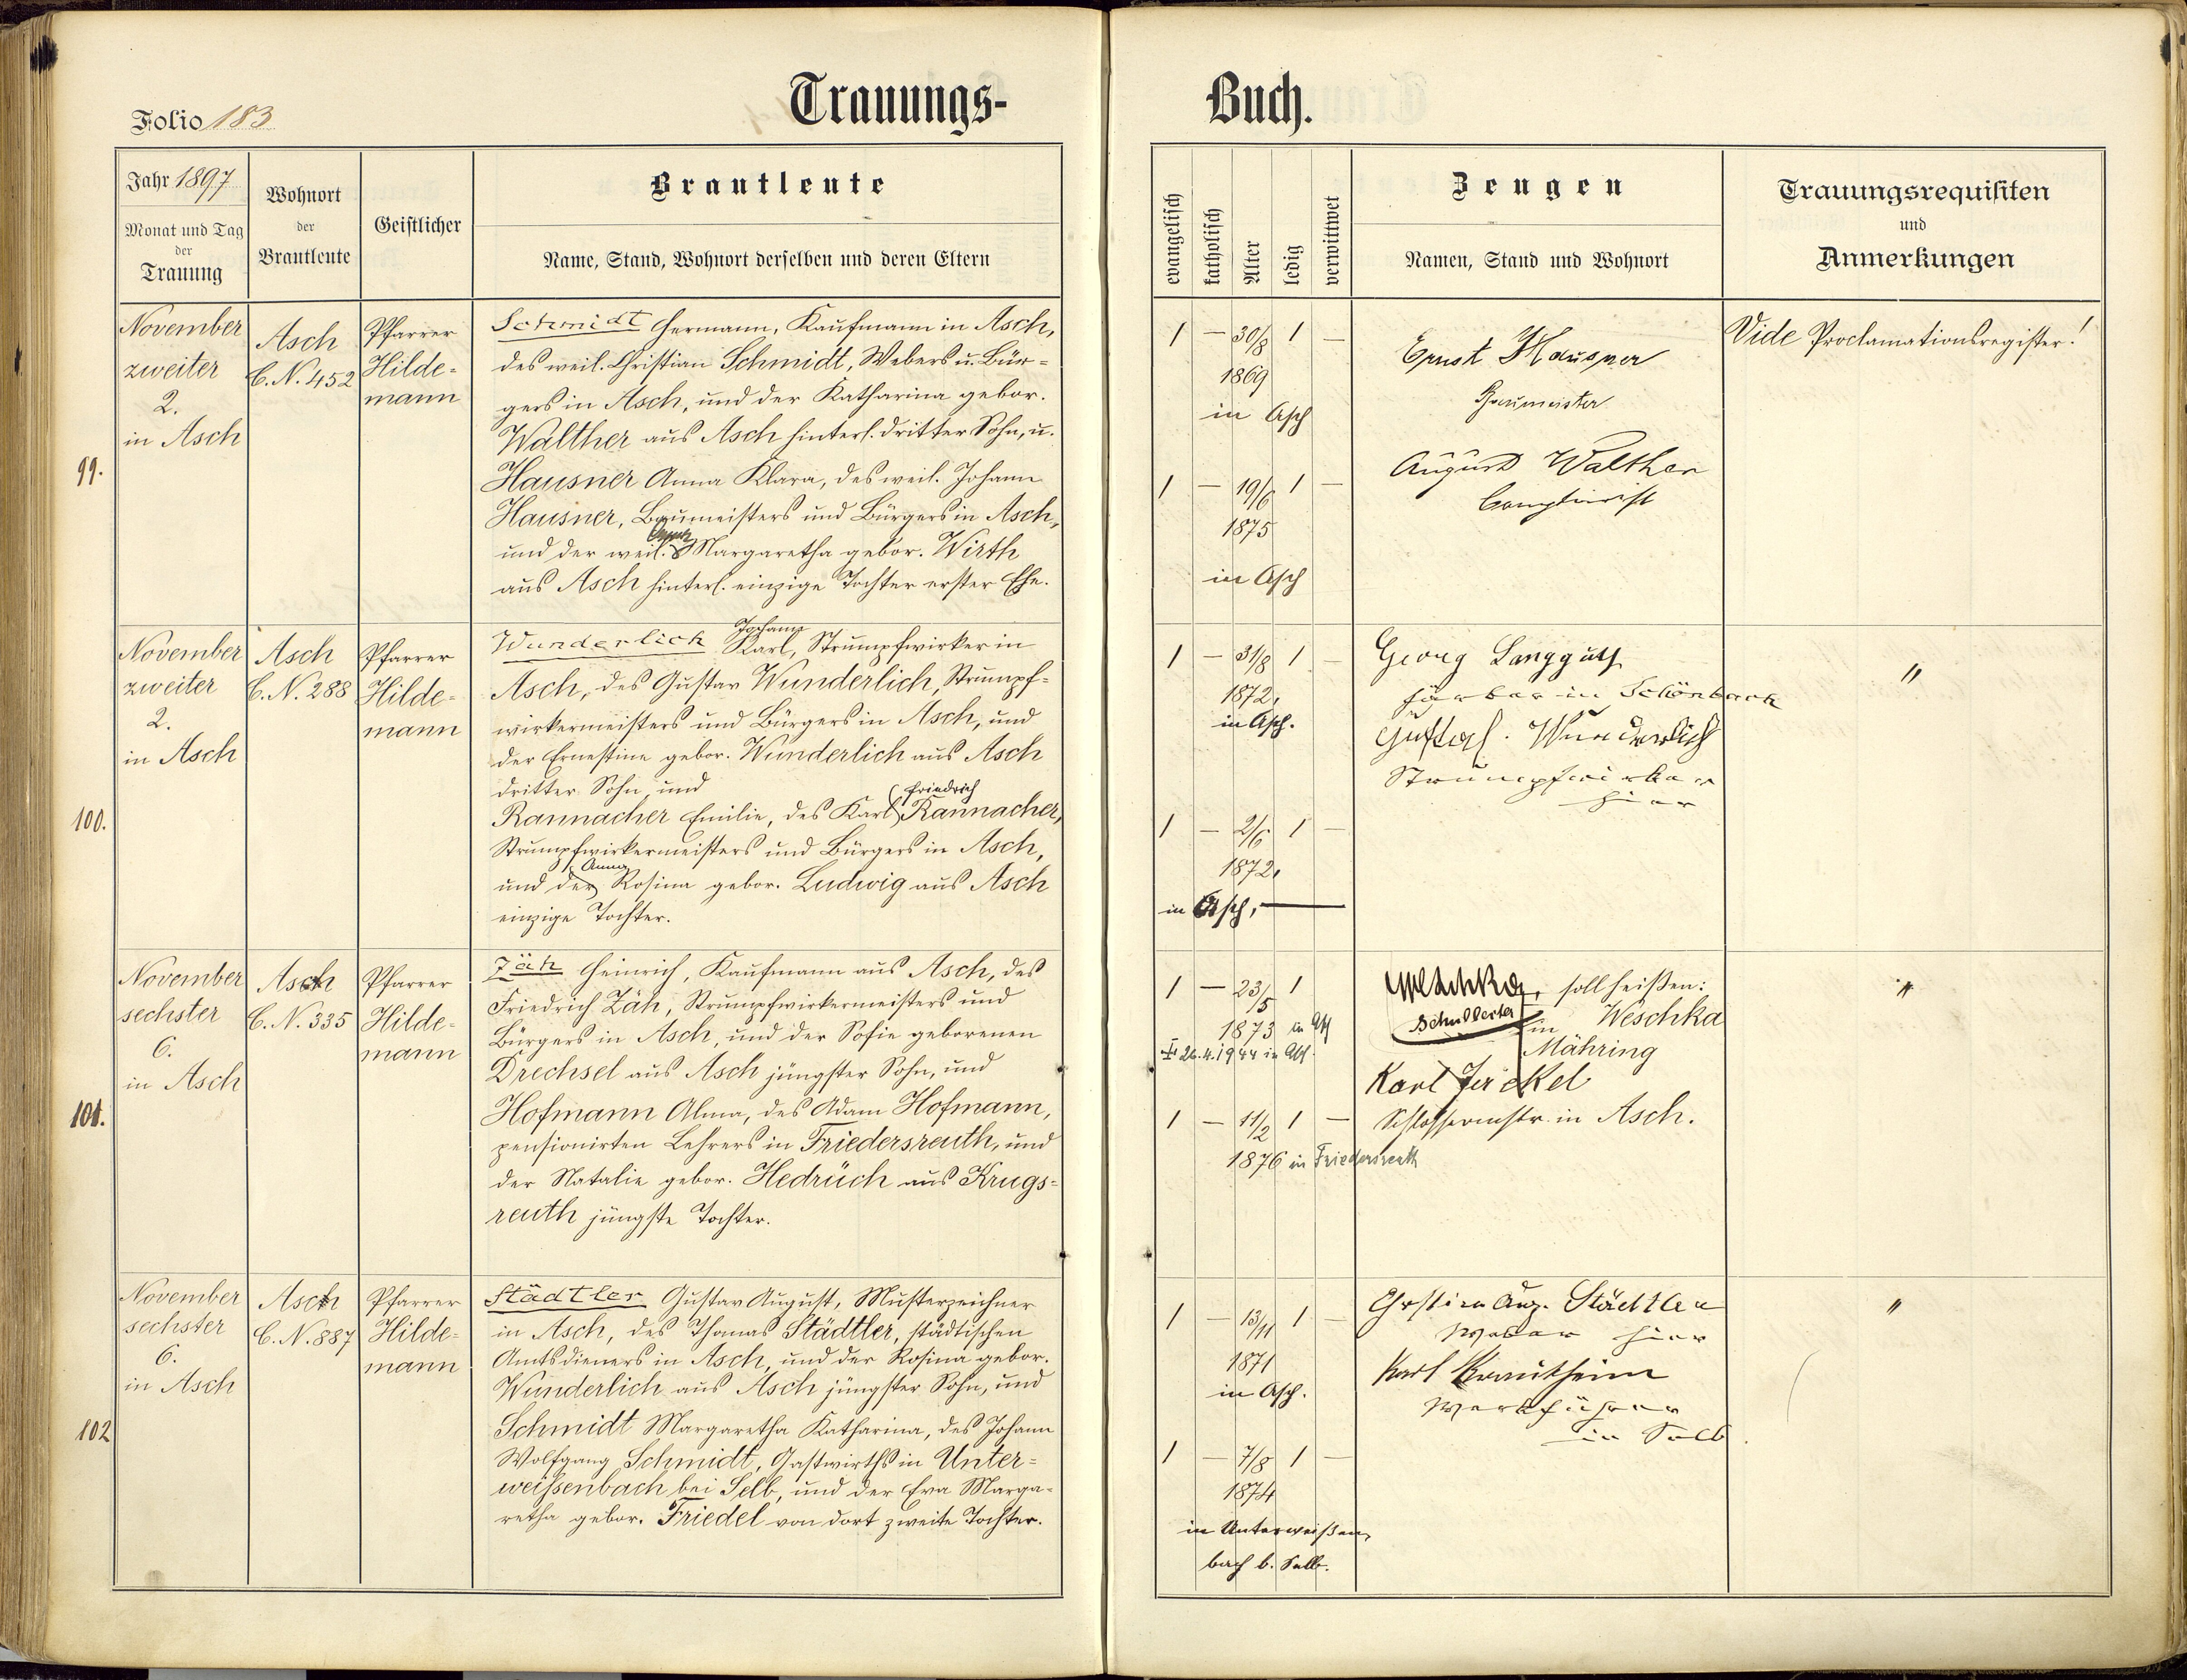 Trauungs-
Buch.
Folio 183
Jahr 1897
Monat und Tag
der
Trauung
Wohnort
der
Brautleute
Geistlicher
Brautleute
Name, Stand, Wohnort derselben und deren Eltern
evangelisch
katholisch
Alter
ledig
verwittwet
Zeugen
Namen, Stand und Wohnort
Trauungsrequisiten
und
Anmerkungen
99.
November
zweiter
2.
in Asch
Asch
C. N. 452
Pfarrer
Hilde-
mann
Schmidt Hermann, Kaufmann in Asch,
des weil. Christian Schmidt, Webers u. Bür-
gers in Asch, und der Katharina gebor.
Walther aus Asch hinterl. dritter Sohn, u.
Hausner Anna Klara, des weil. Johann
Hausner, Baumeisters und Bürgers in Asch,
und der weil. Margaretha gebor. Wirth
aus Asch hinterl. einzige Tochter erster Ehe.
1 — 30/8 1 —
1869
in Asch
1 — 19/6 1 —
1875
in Asch
Ernst Hausner
Baumeister
August Walther
Comptoirist
Vide Proclamationsregister!
100.
November
zweiter
2.
in Asch
Asch
C. N. 288
Pfarrer
Hilde-
mann
Johann
Wunderlich Karl, Strumpfwirker in
Asch, des Gustav Wunderlich, Strumpf-
wirkermeisters und Bürgers in Asch, und
der Ernestine gebor. Wunderlich aus Asch
dritter Sohn, und
Friedrich
Rannacher Emilie, des Karl Rannacher,
Strumpfwirkermeisters und Bürgers in Asch,
Anna
und der Rosina gebor. Ludwig aus Asch
einzige Tochter.
1 — 31/8 1 —
1872,
in Asch.
1 — 2/6 1 —
1872,
in Asch, —
Georg Langguth
Färber in Schönbach
Gustav Wunderlich
Strumpfwirker
hier
"
101.
November
sechster
6.
in Asch
Asch
C. N. 335
Pfarrer
Hilde-
mann
Zäh Heinrich, Kaufmann aus Asch, des
Friedrich Zäh, Strumpfwirkermeisters und
Bürgers in Asch, und der Sofie geborenen
Drechsel aus Asch jüngster Sohn, und
Hofmann Alma, des Adam Hofmann,
pensionirten Lehrers in Friedersreuth, und
der Natalie gebor. Hedrüch aus Krugs-
reuth jüngste Tochter.
1 — 23/5 1
1873 in Asch
26.4.1944 in Asch.
1 — 11/2 1 —
1876 in Friedersreuth
Weschka, soll heißen:
Schulleiter in Weschka
Mähring
Karl Jäckel
Schlossermstr. in Asch.
"
102
November
sechster
6.
in Asch
Asch
C. N. 887
Pfarrer
Hilde-
mann
Städtler Gustav August, Musterzeichner
in Asch, des Thomas Städtler, städtischen
Amtsdieners in Asch, und der Rosina gebor.
Wunderlich aus Asch jüngster Sohn, und
Schmidt Margaretha Katharina, des Johann
Wolfgang Schmidt, Gastwirths in Unter-
weißenbach bei Selb, und der Eva Marga-
retha gebor. Friedel von dort zweite Tochter.
1 — 13/11 1 —
1871
in Asch.
1 — 7/8 1 —
1874
in Unterweißen-
bach b. Selb.
Christian Aug. Städtler
Weber hier
Karl Krautheim
Werkführer
in Selb
"